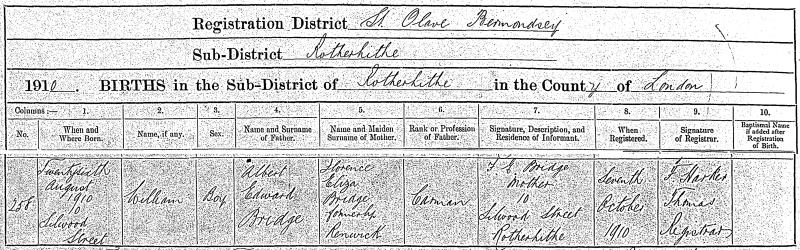 Registration District St. Olave Bermondsey
Sub-District Rotherhithe
1910. BIRTHS in the Sub-District of Rotherhithe in the County of London
Columns:— 1. 2. 3. 4. 5. 6. 7. 8. 9. 10.
No. When and Where Born. Name, if any. Sex. Name and Surname of Father. Name and Maiden Surname of Mother. Rank or Profession of Father. Signature, Description, and Residence of Informant. When Registered. Signature of Registrar. Baptismal Name if added after Registration of Birth.
258 Twentysixth August 1910 10 Silwood Street William Boy Albert Edward Bridge Florence Eliza Bridge formerly Renwick Carman F. E. Bridge Mother 10 Silwood Street Rotherhithe Seventh October 1910 F. Harker Thomas Registrar